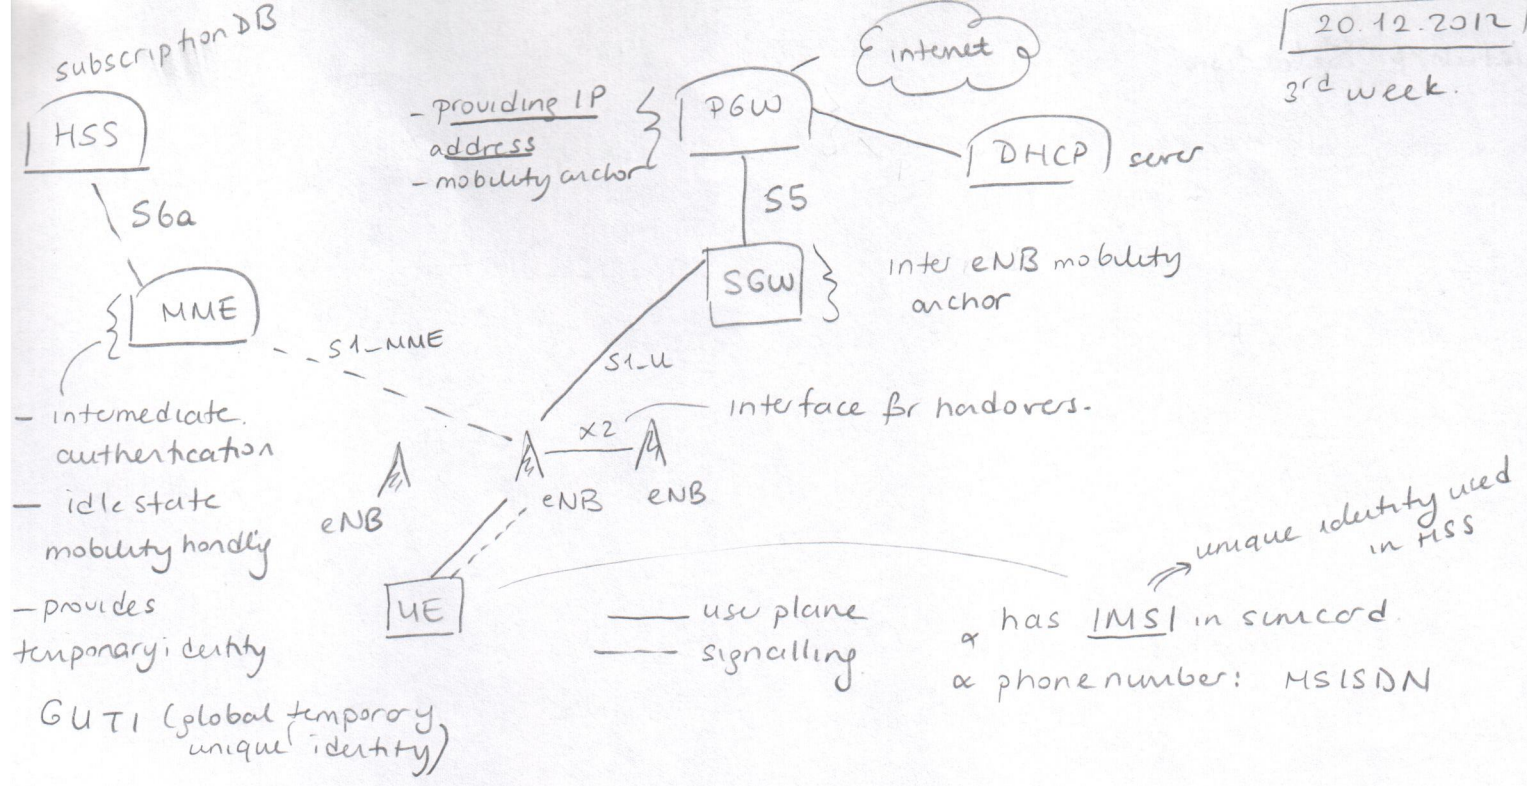 subscription DB
HSS
S6a
MME
S1_MME
- intermediate.
authentication
- idle state
mobility handly
- provides
temporary identity
GUTI (global temporary
unique identity)
- providing IP
address
- mobility anchor
PGW
intenet
DHCP server
S5
SGW
inter eNB mobility
anchor
S1_U
X2
interface for handovers.
eNB
eNB
eNB
UE
user plane
signalling
20.12.2012
3rd week.
unique identity used
in HSS
has IMSI in simcard.
phone number: MSISDN